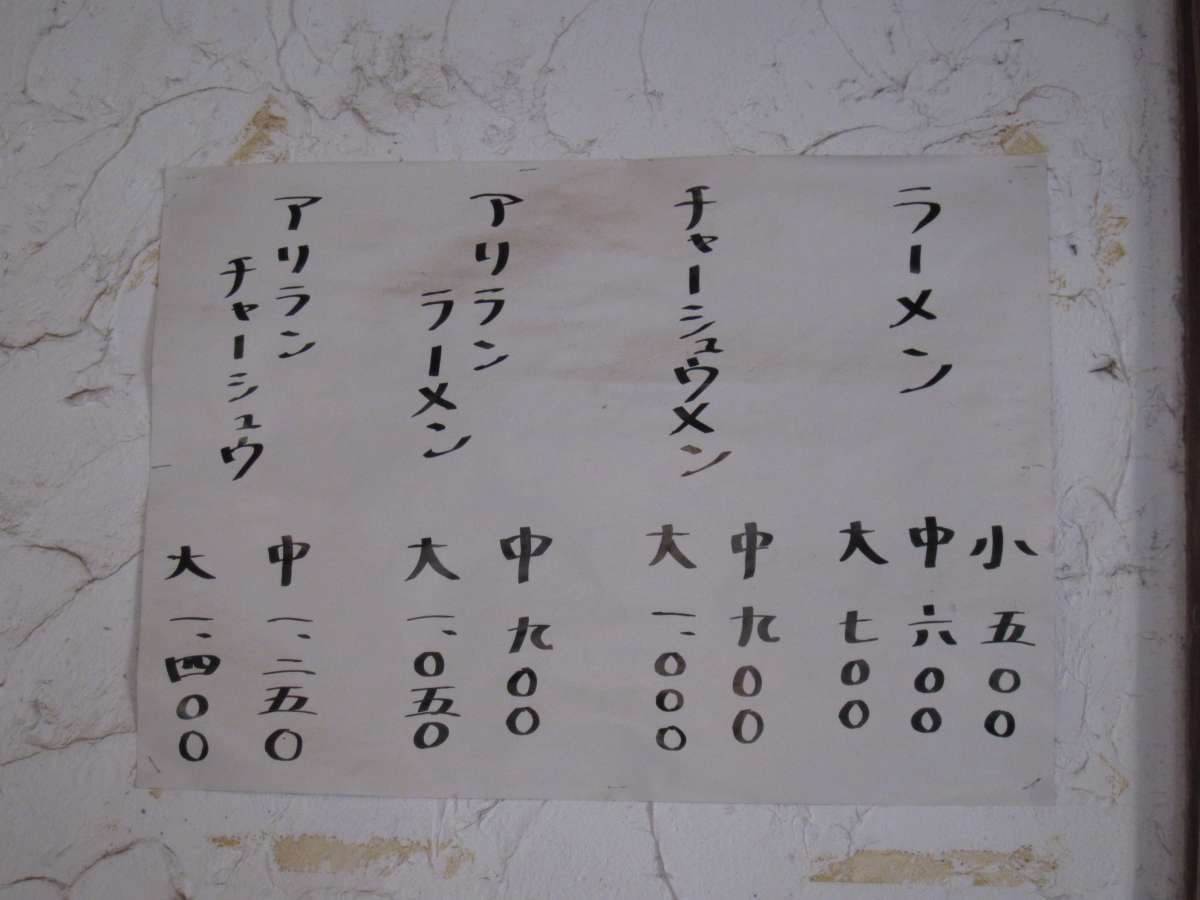 ラーメン
小 五〇〇
中 六〇〇
大 七〇〇
チャーシュウメン
中 九〇〇
大 一、〇〇〇
アリラン
ラーメン
中 九〇〇
大 一、〇五〇
アリラン
チャーシュウ
中 一、二五〇
大 一、四〇〇